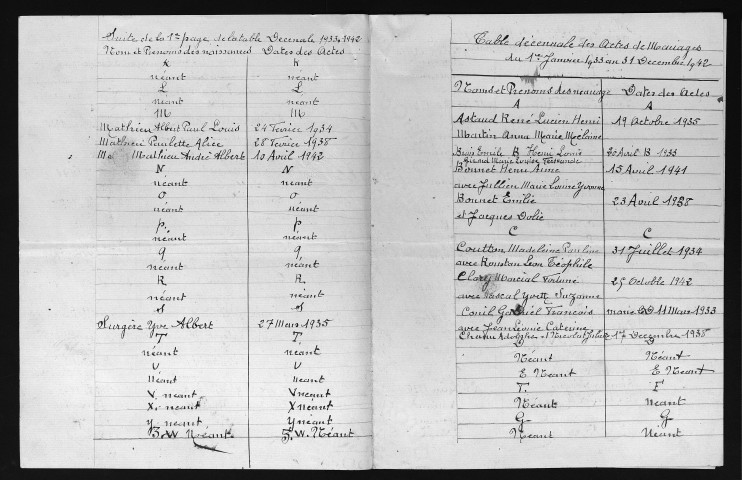 Suite de la 1re page de la table Decenale 1933, 1942
Nom et Prenoms des naissances Dates des Actes
K K
néant néant
L L
néant néant
M M
Mathieu Albert Paul Louis 24 Fevrier 1934
Mathieu Paulette Alice 28 Fevrier 1938
Mathieu André Albert 10 Avril 1942
N N
néant néant
O O
néant néant
P. P,
néant néant
q q
néant néant
R R
néant néant
S S
Surgère Yve Albert 27 Mars 1935
T T
néant néant
U U
néant néant
V néant V néant
X. néant X néant
y néant y néant
Z. W Néant. Z. W. Néant
Table décennale des Actes de Mariages
du 1er Janvier 1933 au 31 Decembre 1942
Noms et Prenoms des mariage Dates des Actes
A A
Astaud René Lucien Henri 19 Octobre 1935
Martin Anna Marie
B Henri Louis 20 Avril B 1933
Marie Louise Fernande
Bonnet Henri 15 Avril 1941
avec Jullien Marie Louise Yvonne
Bonnet Emilie 23 Avril 1938
et Jacques
C C
Coutton Madeleine Pauline 31 Juillet 1934
avec Roustan Leon Téophile
Clary Marcial 25 Octobre 1942
avec Pascal Yvette Suzanne
Gabriel Francois 11 Mars 1933
avec Jean Leonie
17 Decembre 1938
D D
Néant Néant
E Néant E Néant
F. F
Néant néant
G G
Néant Néant